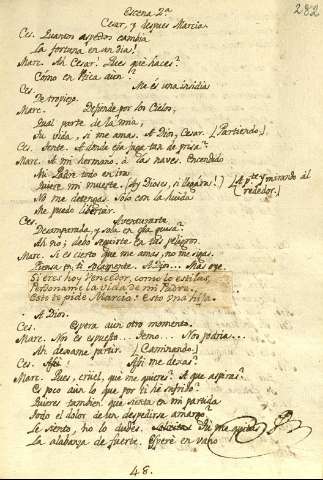 282
Escena 2ª
Cesar, y despues Marcia
Ces. Quantos aspectos cambia
La fortuna en un dia!
Marc. Ah Cesar! Pues que haces?
Como en Utica aun?
Ces. Me es una insidia
De tropiezo.
Marc. Defiende por los Cielos,
Qual parte de la mia,
Tu vida, si me amas. A Dios, Cesar. (Partiendo.)
Ces. Sente. A donde esta fuga tan de prisa?
Marc. A mi hermano, à las naves. Encendido
Mi Padre todo en ira
Quiere mi muerte. (Ay Dioses, si llegára!) (Ap.te y mirando al
rededor.)
No me detengas. Solo con la huida
Me puedo libertar.
Ces. Aventurarte
Desamparada, y sola en esta guisa?
Ah no; debo seguirte en tus peligros.
Marc. Si es cierto que me amas, no me sigas.
Piensa en ti solamente. A Dios... Mas oye.
Si eres hoy Vencedor, como lo estilas,
Perdoname la vida de mi Padre.
Esto te pide Marcia: Esto una hija.
A Dios.
Ces. Espera aun otro momento.
Marc. No: es expuesto... Temo... Nos podria...
Ah dexame partir. (Caminando.)
Ces. Asi me dexas?
Marc. Pues, cruel, que me quieres? A que aspiras?
Es poco aun lo que por ti he sufrido?
Quieres tambien que sienta en mi partida
Todo el dolor de un despedirse amargo?
Le siento, no lo dudes. Tu me quitas
La alabanza de fuerte. Esperé en vano
48.